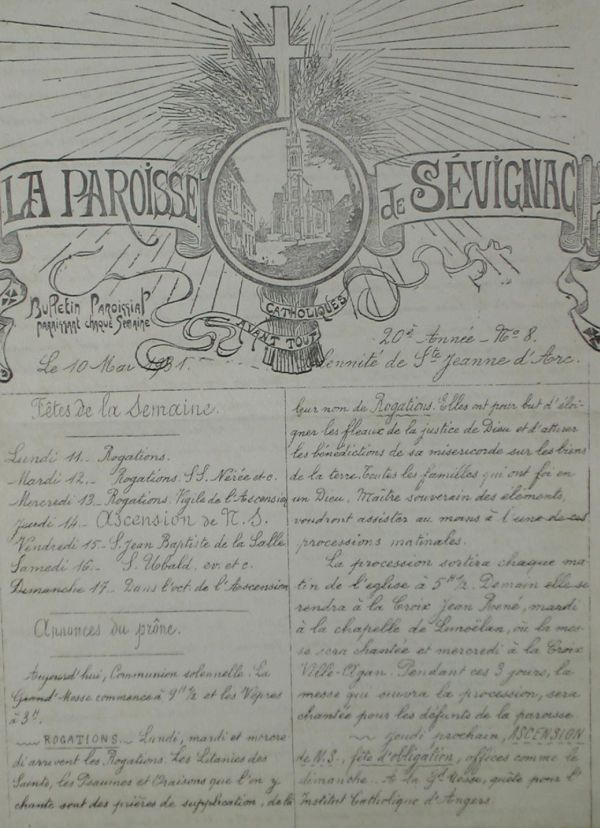 LA PAROISSE de SÉVIGNAC
CATHOLIQUES
AVANT TOUT
Bulletin Paroissial
paraissant chaque Semaine
20e Année - No 8.
Le 10 Mai 1931. Solennité de Ste Jeanne d'Arc.
Fêtes de la Semaine.
Lundi 11.- Rogations.
Mardi 12.- Rogations. SS. Nérée etc.
Mercredi 13.- Rogations. Vigile de l'Ascension
Jeudi 14.- Ascension de N. S.
Vendredi 15.- S. Jean Baptiste de la Salle
Samedi 16.- S. Ubald, ev. et c.
Demanche 17.- Dans l'oct. de l'Ascension
Annonces du prône.
Aujourd'hui, Communion solennelle. La
Grand'Messe commence à 9H 1/2 et les Vêpres
à 3H.
ROGATIONS.- Lundi, mardi et mercre
di arrivent les Rogations. Les Litanies des
Saints, les Psaumes et Oraisons que l'on y
chante sont des prières de supplication, de là
leur nom de Rogations. Elles ont pour but d'éloi-
gner les fléaux de la justice de Dieu et d'attirer
les bénédictions de sa misericorde sur les biens
de la terre. Toutes les familles qui ont foi en
un Dieu, Maître souverain des éléments,
voudront assister au moins à l'une de ces
processions matinales.
La procession sortira chaque ma
tin de l'eglise à 5H 1/2. Demain elle se
rendra à la Croix Jean René, mardi
à la chapelle de Lanoëlan, où la mes-
se sera chantée et mercredi à la Croix
Ville-Agan. Pendant ces 3 jours, la
messe qui suivra la procession, sera
chantée pour les défunts de la paroisse
Jeudi prochain, ASCENSION
de N.S., fête d'obligation, offices comme le
dimanche. A la Gd Messe, quête pour l'
Institut Catholique d'Angers